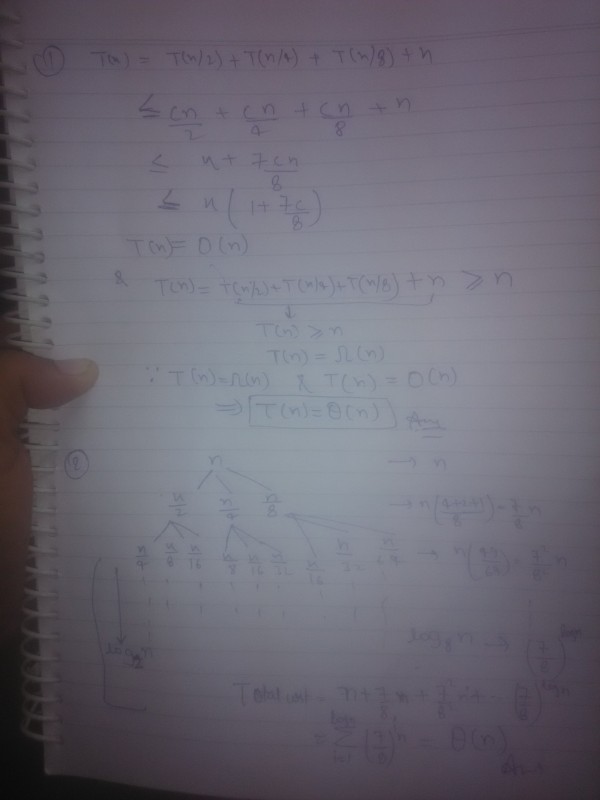 ① T(n) = T(n/2) + T(n/4) + T(n/8) + n
≤ cn/2 + cn/4 + cn/8 + n
≤ n + 7cn/8
≤ n(1 + 7c/8)
T(n) = O(n)
& T(n) = T(n/2) + T(n/4) + T(n/8) + n ≥ n
↓
T(n) ≥ n
T(n) = Ω(n)
∵ T(n) = Ω(n) & T(n) = O(n)
⇒ T(n) = Θ(n) Ans
② n → n
n/2 n/4 n/8 → n((4+2+1)/8) = 7/8 n
n/4 n/8 n/16 n/8 n/16 n/32 n/16 n/32 → n(49/64) =
Total cost = n + 7/8 n +
= Θ(n)
Ans